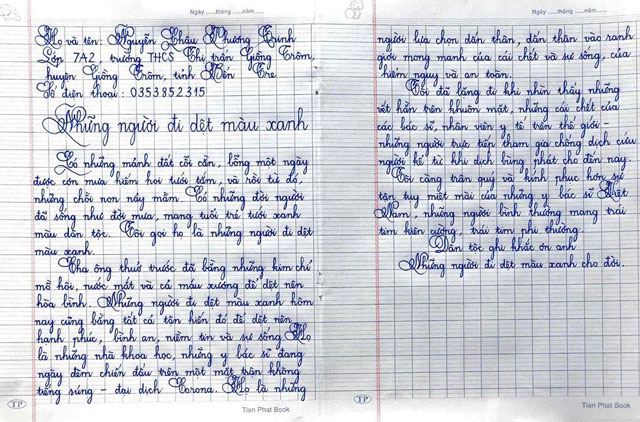 Ngày ....tháng ....năm.....
Họ và tên: Nguyễn Châu Phương Trinh
Lớp 7A2, trường THCS Thị trấn Giồng Trôm,
huyện Giồng Trôm, tỉnh Bến Tre
Số điện thoại: 0353852315
Những người đi dệt màu xanh
Có những mảnh đất cỗi cằn, bỗng một ngày
được cơn mưa hiếm hoi tưới tắm, và rồi từ đó,
những chồi non nảy mầm. Có những đời người
đã sống như đời mưa, mang tuổi trẻ tưới xanh
màu dân tộc. Tôi gọi họ là những người đi dệt
màu xanh.
Cha ông thuở trước đã bằng những kim chỉ
mồ hôi, nước mắt và cả máu xương để dệt nên
hòa bình. Những người đi dệt màu xanh hôm
nay cũng bằng tất cả tận hiến đó để dệt nên
hạnh phúc, bình an, niềm tin và sự sống. Họ
là những nhà khoa học, những y bác sĩ đang
ngày đêm chiến đấu trên một mặt trận không
tiếng súng - đại dịch Corona. Họ là những
TP
Tien Phat Book
Ngày ....tháng ....năm.....
người lựa chọn dấn thân, dấn thân vào ranh
giới mong manh của cái chết và sự sống, của
hiểm nguy và an toàn.
Tôi đã lặng đi khi nhìn thấy những
vết hằn trên khuôn mặt, những cái chết của
các bác sĩ, nhân viên y tế trên thế giới -
những người trực tiếp tham gia chống dịch cứu
người kể từ khi dịch bùng phát cho đến nay.
Tôi càng trân quý và kính phục hơn sự
tận tụy miệt mài của những y bác sĩ Việt
Nam, những người bình thường mang trái
tim kiên cường, trái tim phi thường.
Dân tộc ghi khắc ơn anh
Những người đi dệt màu xanh cho đời.
TP
Tien Phat Book